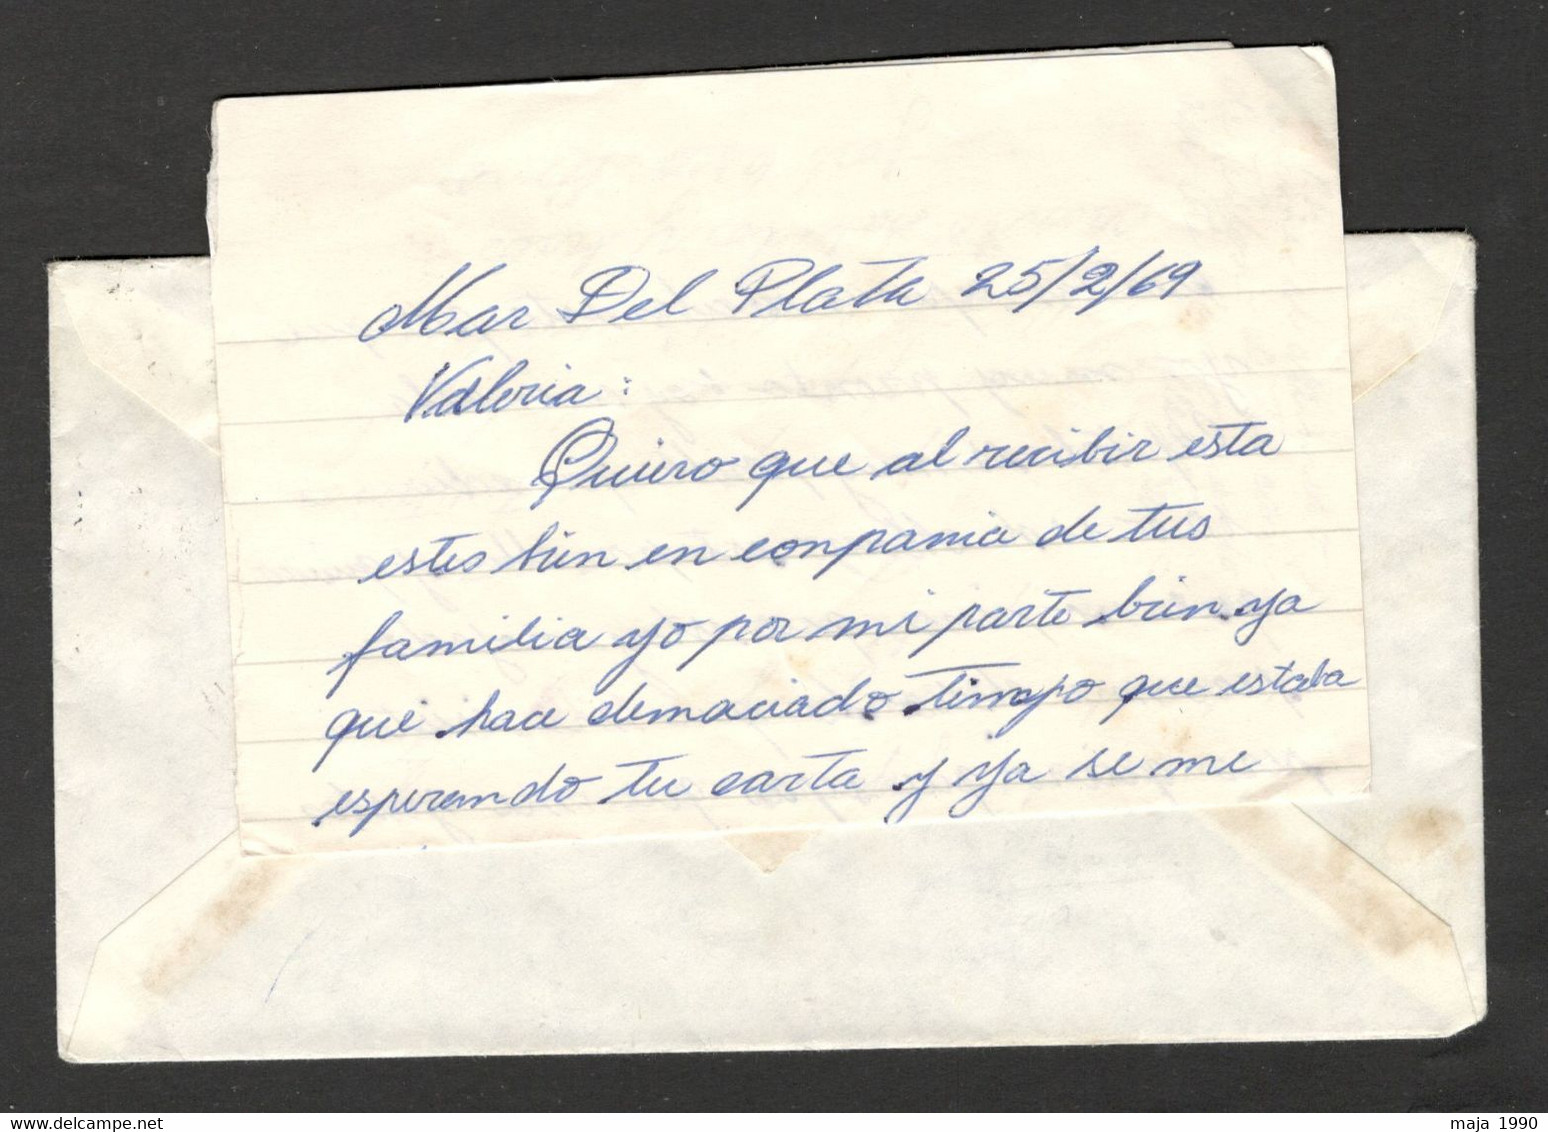 Mar Del Plata 25/2/69
Valeria:
Quiero que al recibir esta
estes bien en conpania de tus
familia yo por mi parte bien ya
que hace demaciado tiempo que estaba
esperando tu carta y ya se me
www.delcampe.net
maja 1990